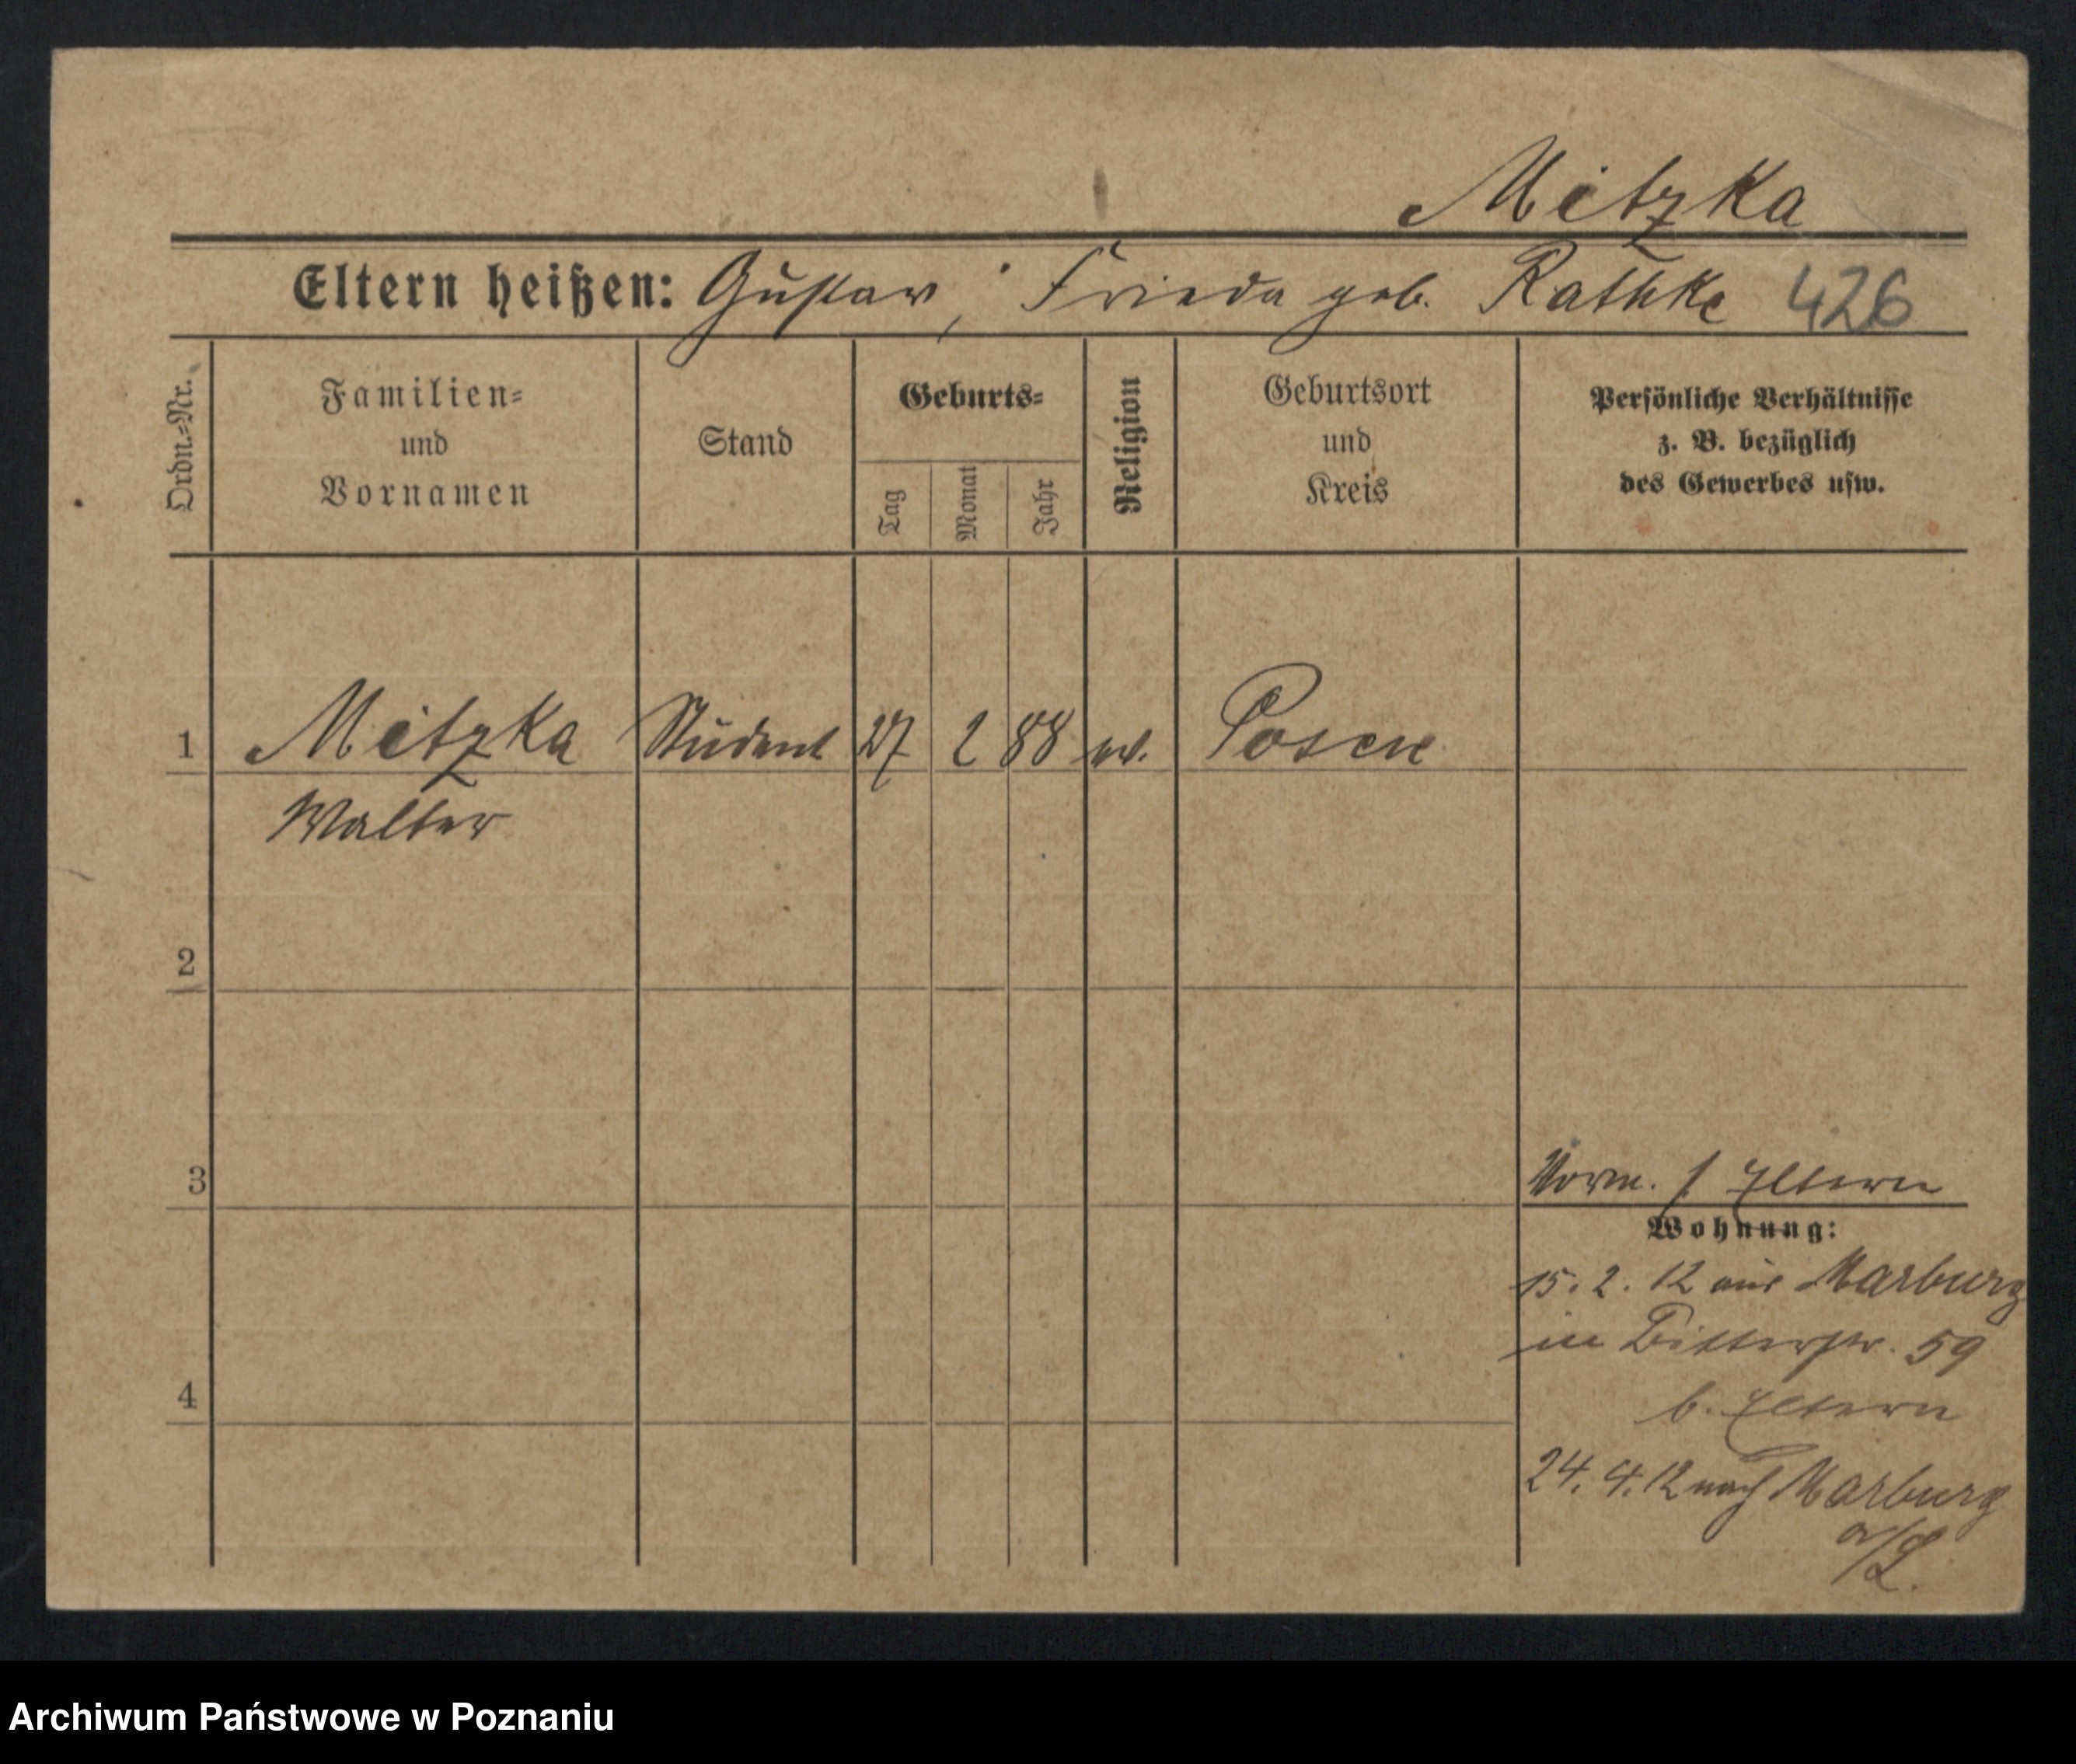 Mitzka
Eltern heißen: Gustav, Frieda geb. Rathke 426
Ordn.-Nr.
Familien-
und
Vornamen
Stand
Geburts-
Tag
Monat
Jahr
Religion
Geburtsort
und
Kreis
Persönliche Verhältnisse
z. B. bezüglich
des Gewerbes usw.
1 Mitzka Student 27 2 88 ev. Posen
Walter
2
3
Vorm. s. Eltern
Wohnung:
15. 2. 12 aus Marburg
in Bitterstr. 59
b. Eltern
4
24. 4. 12 nach Marburg
a/L.
Archiwum Państwowe w Poznaniu